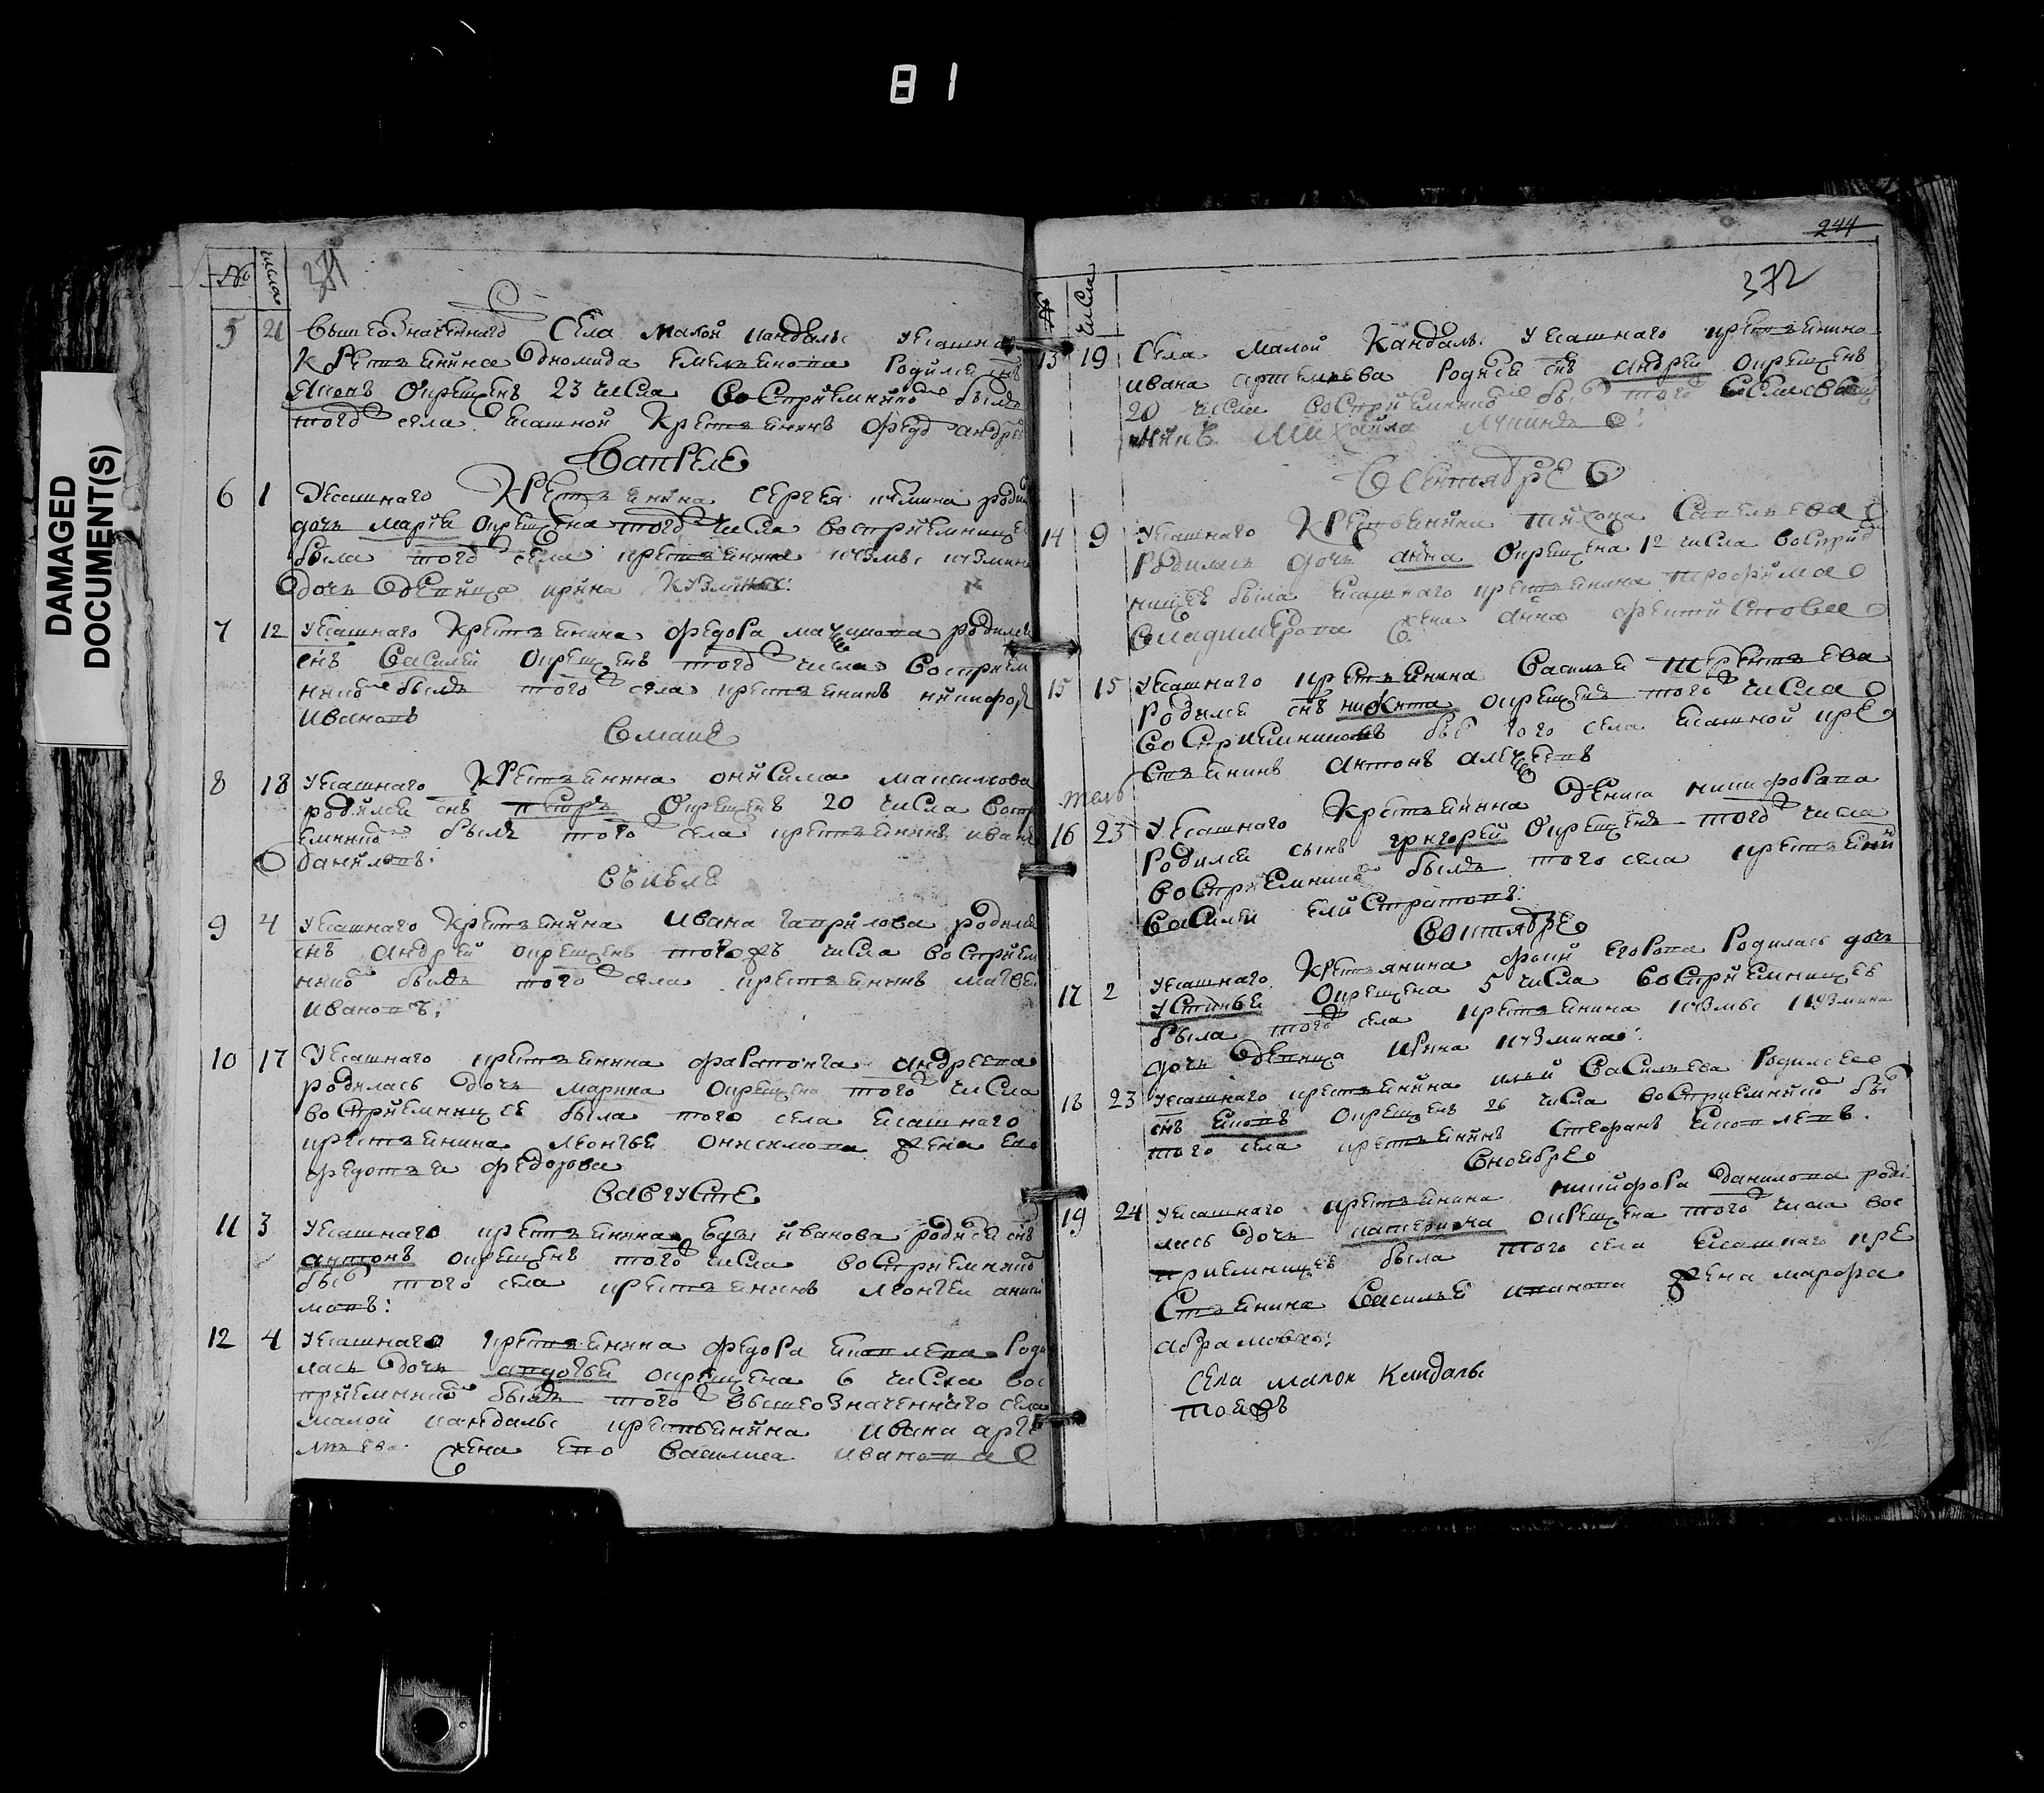 81
DAMAGED
DOCUMENT(S)
№ числа 371
5 21 вышеозначеннаго села малой кандалы ясашна
крестьянина Диомида емельянова родился снъ
Яковъ окрещенъ 23 числа восприемникО былъ
того села ясашной крестьянинъ Фед андре
Вапреле
6 1 Ясашнаго крестьянина сергея кузмина роди
дочь мария окрещена того числа восприемницею
была того села крестьянина кузмы кузмина
дочь девица ирина кузмина:
7 12 Ясашнаго крестьянина федора родился
снъ Василей окрещенъ того числа восприем
никО былъ того села крестьянинъ никифор
Ивановъ
Вмаие
8 18 Ясашнаго крестьянина онисима максимова
родился снъ петръ окрещенъ 20 числа восп
емникО былъ того села крестьянинъ иванъ
даниловъ:
Въ июле
9 4 Ясашнаго крестьянина Ивана гаврилова родился
снъ андрей окрещенъ того жъ числа восприем
никО былъ того села крестьянинъ матвеи
Ивановъ:
10 17 Ясашнаго крестьянина андреева
родилась дочь марина окрещена того числа
восприемницее была того села ясашнаго
крестьянина леонтья онисимова жена ево
федотья федорова
Вавгусте
11 3 Ясашнаго крестьянина иванова родися снъ
антонъ окрещенъ того числа восприемникО
бы того села крестьянинъ леонтеи аниси
мовъ:
12 4 Ясашнаго крестьянина федора яковлева Роди
лась дочь авдотья окрещена 6 числа вос
приемникО былъ того вышеозначеннаго села
малой кандалы крестьянина ивана арте
мьева жена ево василиса иванова
244
372
№ числа
13 19 Села малой Кандалы Ясашнаго крестьянина
ивана артемьева родися снъ андреи окрещенъ
20 числа восприемникО бы того села
михайла лукинъ:
Всентябре
14 9 Ясашнаго крестьянина тихона савельева
родилась дочь анна окрещена 12 числа восприе
ницее была ясашнаго крестьянина трофима
владимерова жена анна
15 15 Ясашнаго крестьянина василья терентьева
родился снъ никита окрещенъ того числа
восприемникомъ бы того села ясашной кре
стьянинъ антонъ алексеевъ
16 23 Ясашнаго крестьянина дениса никифорова
родился сынъ григорей окрещенъ того числа
восприемникО былъ того села крестьянин
василеи елистратовъ:
Воктябре
17 2 Ясашнаго крестьянина фоки егорова родилась дочь
устинья окрещена 5 числа восприемницее
была того села крестьянина кузмы кузмина
дочь девица ирина кузмина:
18 23 Ясашнаго крестьянина ильи васильева родился
снъ яковъ окрещенъ 26 числа восприемникО бы
того села крестьянинъ стефанъ яковлевъ.
Вноябре
19 24 Ясашнаго крестьянина никифора данилова роди
лась дочь катерина окрещена того числа вос
приемницее была того села ясашнаго кре
стьянина василья иванова жена марфа
абрамова:
села малои Кандалы
тоежъ